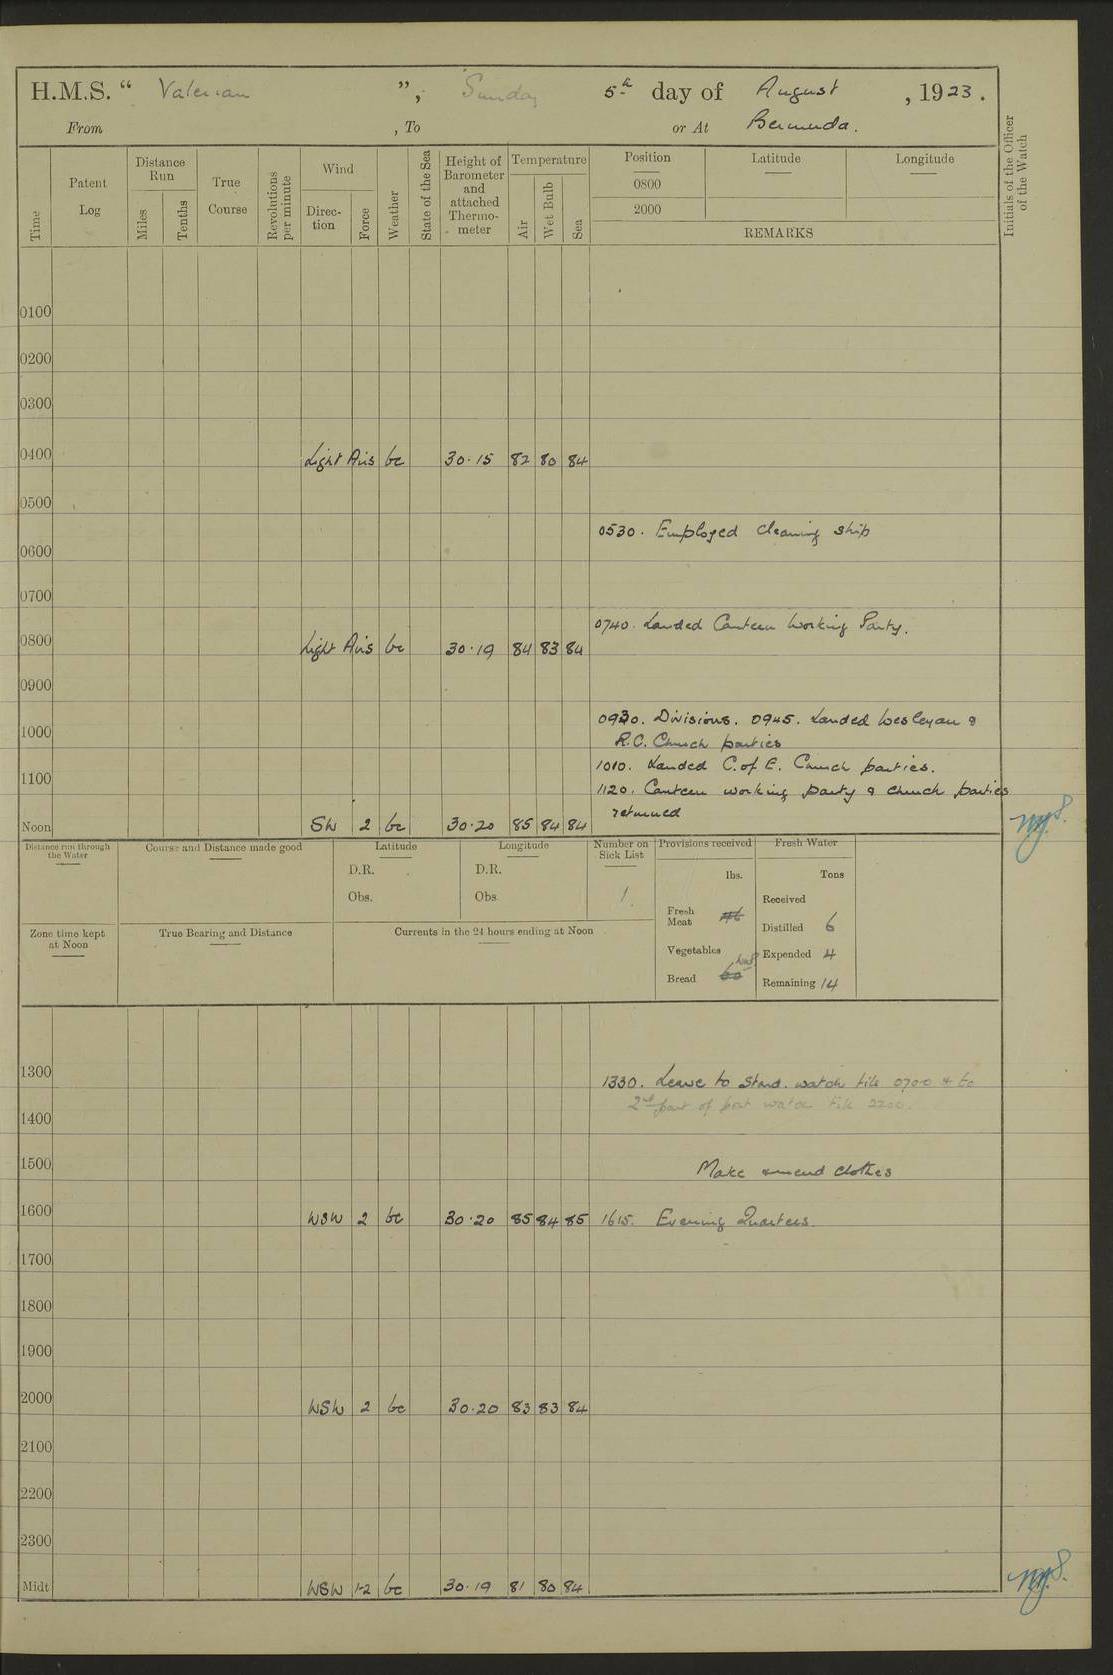 H.M.S. “ Valerian ”, Sunday 5th day of August , 1923.
From , To or At Bermuda.
Time
Patent Log
Distance Run
Miles
Tenths
True Course
Revolutions per minute
Wind
Direc-tion
Force
Weather
State of the Sea
Height of Barometer and attached Thermo-meter
Temperature
Air
Wet Bulb
Sea
Position
0800
2000
Latitude
Longitude
REMARKS
Initials of the Officer of the Watch
0100
0200
0300
0400 Light Airs bc 30.15 82 80 84
0500
0530. Employed cleaning ship
0600
0700
0740. Landed Canteen Working Party.
0800 Light Airs bc 30.19 84 83 84
0900
0930. Divisions. 0945. Landed Wesleyan &
1000 R.C. Church parties
1010. Landed C. of E. Church parties.
1100
1120. Canteen working party & church parties
returned
Noon SW 2 bc 30.20 85 84 84
Distance run through the Water
Course and Distance made good
Latitude
D.R.
Obs.
Longitude
D.R.
Obs
Number on Sick List
1.
Provisions received
lbs.
Fresh Meat 46
Vegetables
Bread 60
Fresh Water
Tons
Received
Distilled 6
Expended 4
Remaining 14
Zone time kept at Noon
True Bearing and Distance
Currents in the 24 hours ending at Noon
1300
1330. Leave to Starb. watch till 0700 & to
2nd part of port watch till 2200.
1400
1500 Make & mend clothes
1600 WSW 2 bc 30.20 85 84 85 1615. Evening Quarters
1700
1800
1900
2000 WSW 2 bc 30.20 83 83 84
2100
2200
2300
Midt WSW 1-2 bc 30.19 81 80 84